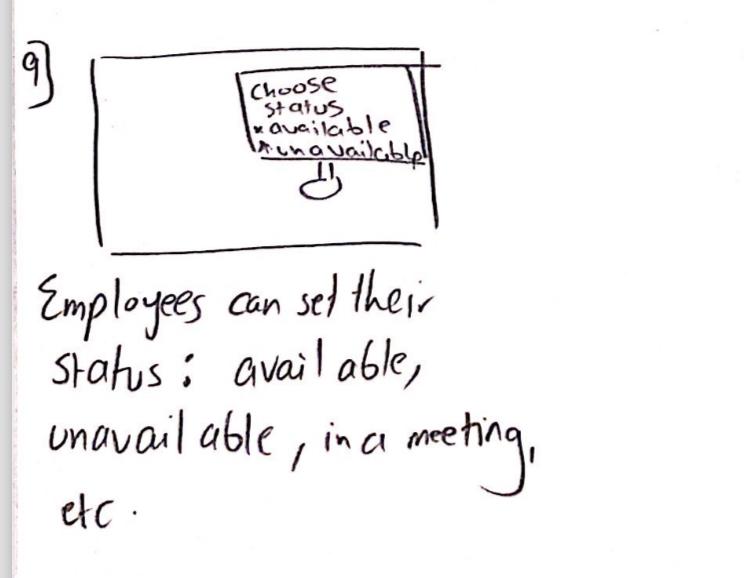 9]
Choose
status
* available
* unavailable
Employees can set their
status: available,
unavailable, in a meeting,
etc.